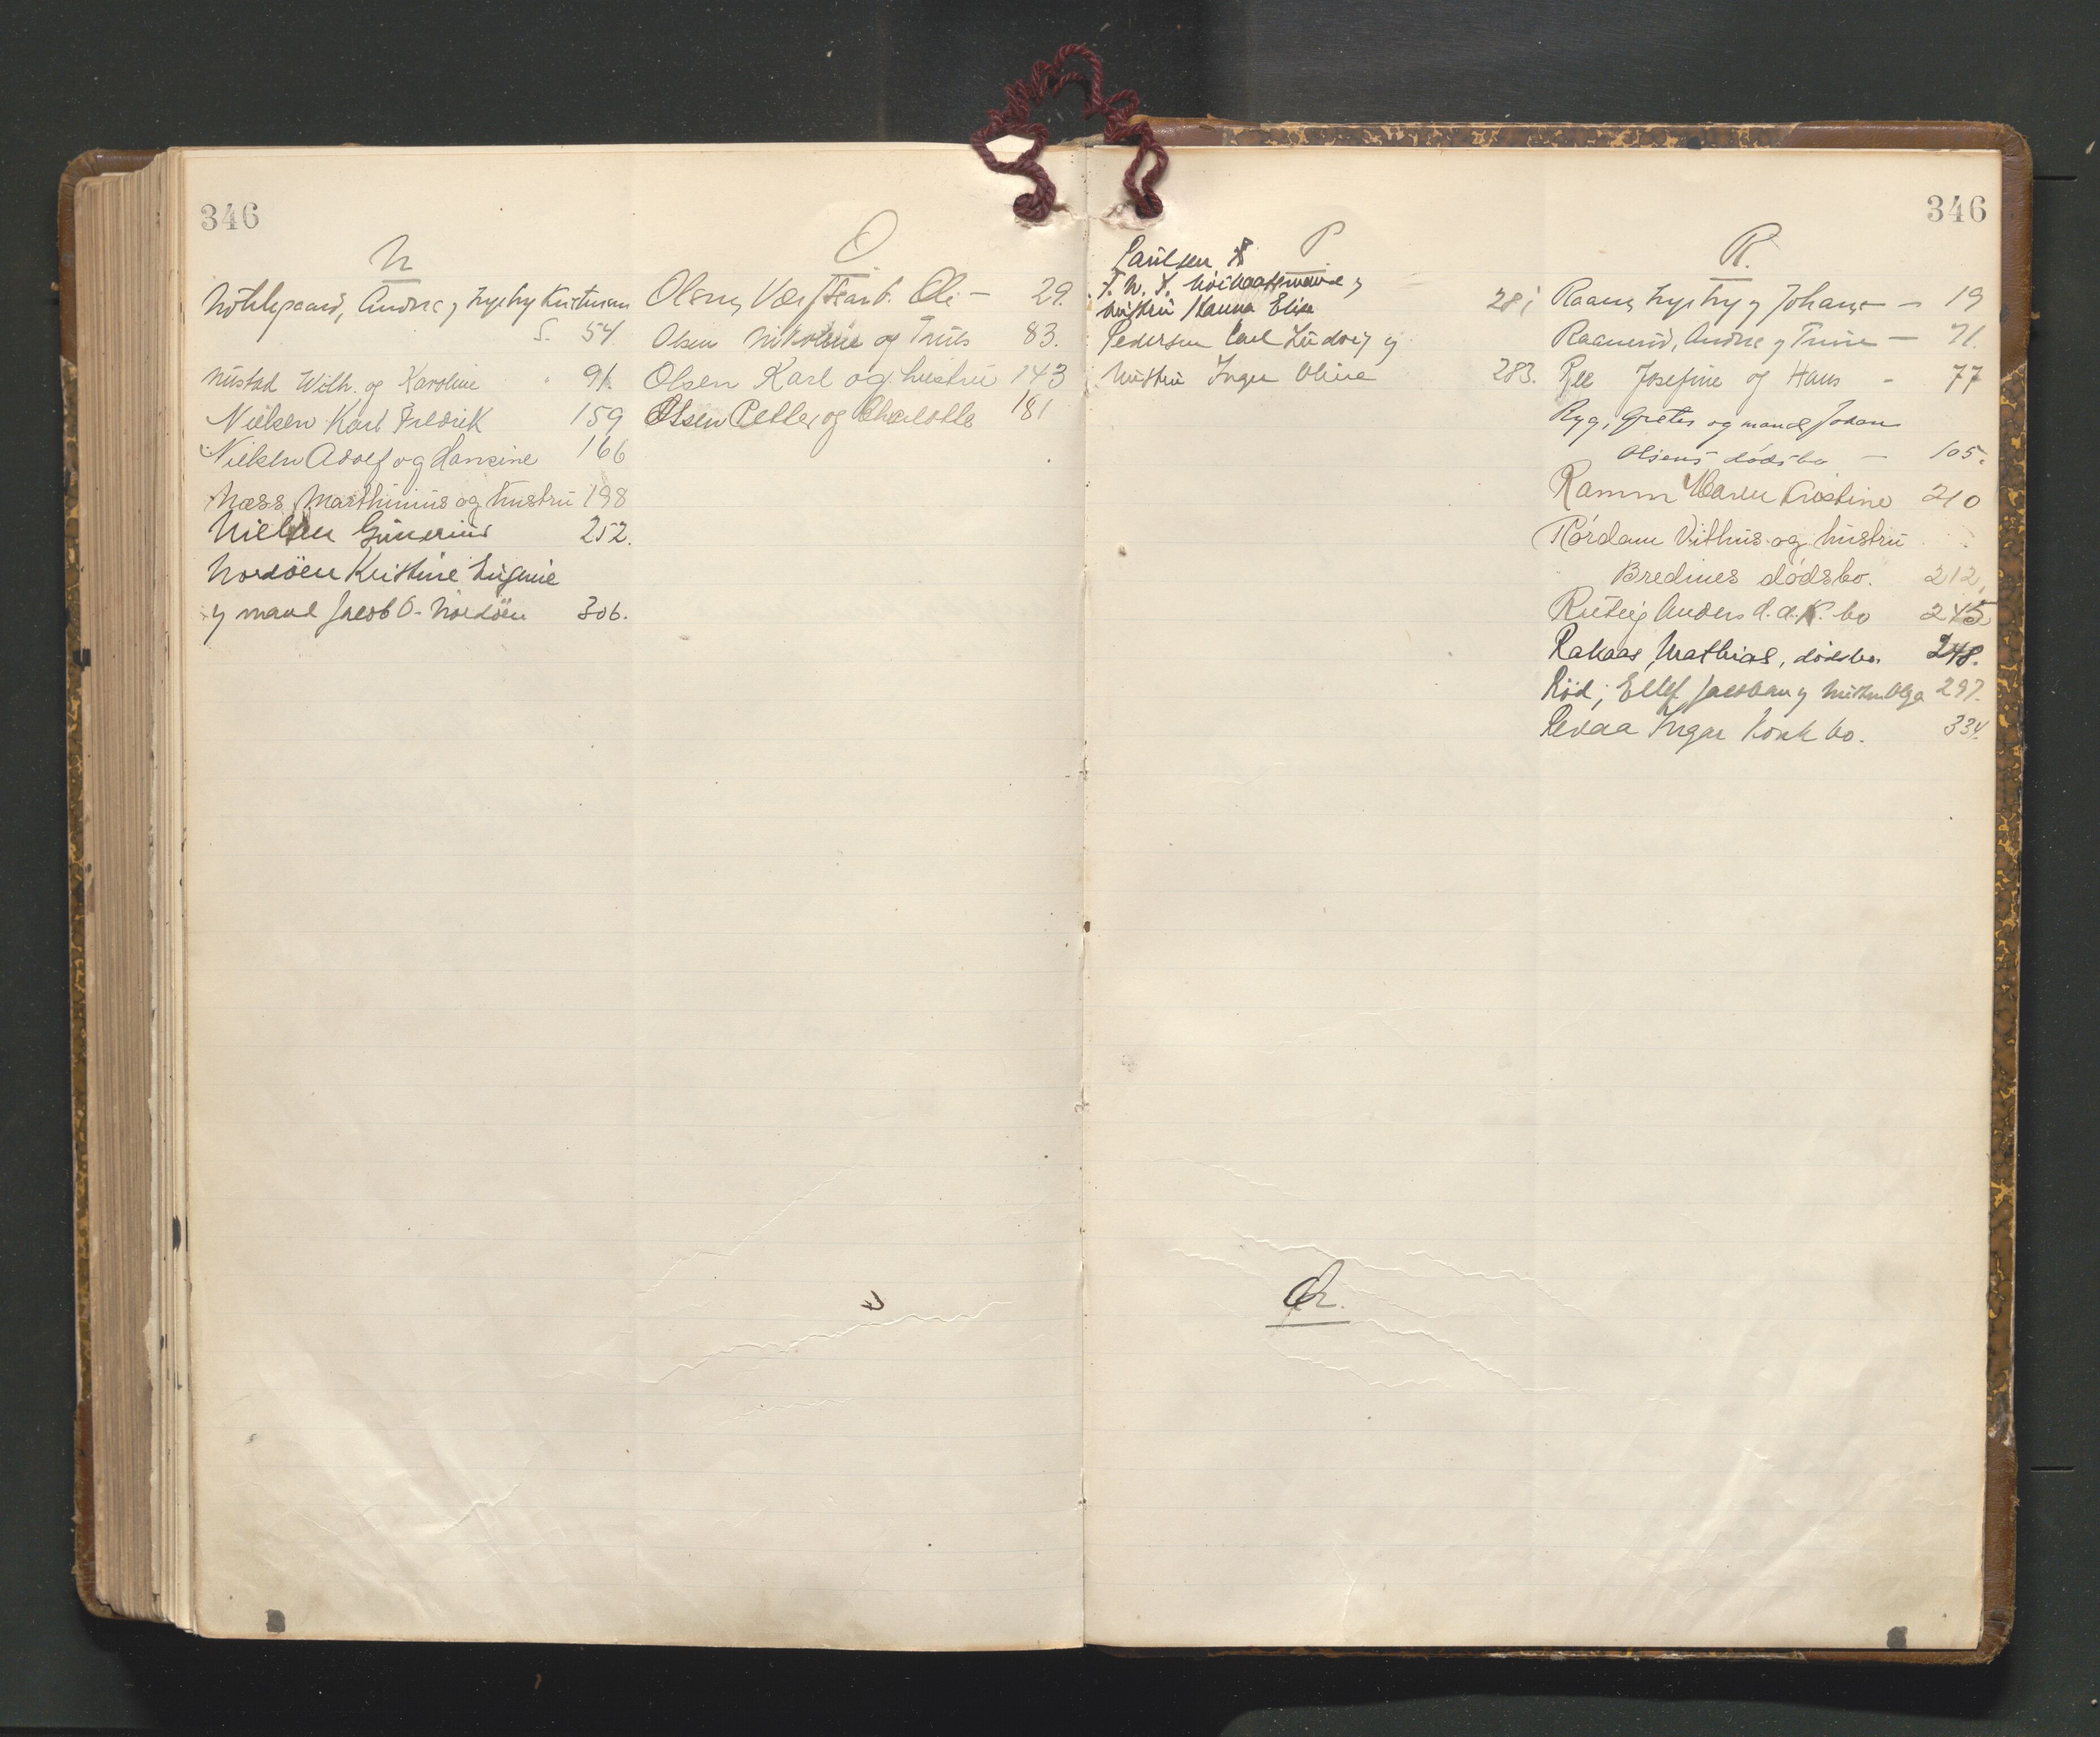 346
N
Nøklegaard, Andrea og Ingebrg Kristensen
S. 54.
Nustad Wilh. og Karoline " 91.
Nielsen Karl Fredrik 159
Nielsen Adolf og Hansine 166
Næss, Marthinius og hustru 198
Nielsen Gunerius 252.
Nordöen Kristine Eugenie
og mand Jacob O. Nordöen 306.
O
Olsen, Ole – 29.
Olsen Nikoline og Truls 83.
Olsen Karl og hustru 143
Olsen Petter og Charlotte 181
346
P
Paulsen
hustru Hanna Elise 281
Pedersen Carl Ludvig og
hustru Inger Oline 283.
Qv.
R.
Raaen, Ingebrg og Johan – 19
Raanerud, Andrea og Trine – 71.
Ree Josefine og Hans – 77
Ryg, Grete og mand Johan
Olsens dødsbo – 105.
Ramm Maren Kristine 210
Rørdam Vithus og hustru
Bredines dødsbo. 212,
Anders d. d. K. bo 245
Rakaas, Mathias, dødsbo. 248.
Röd, Ellef Jacobsen og hustru Olga 297.
Revaa Ingar Konk bo. 334.